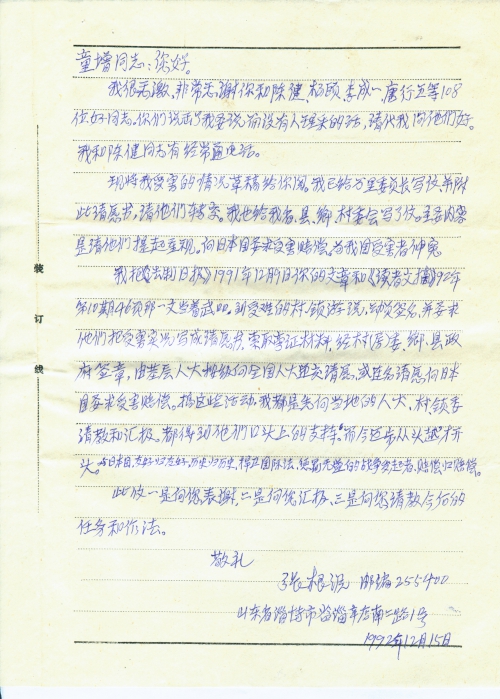 童增同志：您好。
我很感激，非常感谢你和陈健、杨政、李成一、唐行五等108
位好同志。你们说出了我要说而没有人理采的话，请代我问他们好。
我和陈健同志有经常通电话。
现将我受害的情况草稿给你阅，我已给万里委员长写信并附
此请愿书，请他们转交。我也给我省、县、乡、村委会写了信。主要内容
是请他们提起重视。向日本国要求受害赔偿。为我国受害者伸冤
我把《法制日报》1991年12月9日你的文章和《读者文摘》92年
第10期46页那一文当着武器。到受难的村、镇游说，动员签名，并要求
他们把受害实况写成请愿书，索取旁证材料，经村(居)委、乡、县政
府签章，由基层人大 向全国人大 请愿，或连名请愿向日本
国要求受害赔偿。搞这些活动，我都是先向当地的人大，村、镇委
请教和汇报，都得到他们口头上的支持。"而今迈步从头越"才开
头。与日本国友好归友好，历史归历史，捍卫国际法，使 的战争发起者，赔偿归赔偿。
此信一是向您表谢，二是向您汇报，三是向您请教今后的
任务和作法。
敬礼
张根 邮编255400
山东省淄博市临淄辛店南二路1号
1992年12月15日
装
订
线